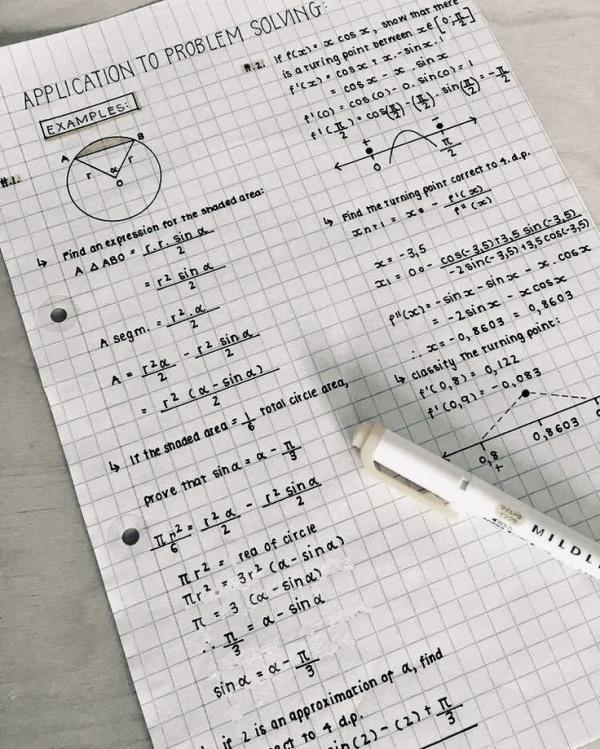 APPLICATION TO PROBLEM SOLVING:
EXAMPLES:
#.1.
A
B
r
α
r
O
↳ Find an expression for the shaded area:
A △ ABO = r.r. sin α / 2
= r² sin α / 2
A segm. = r². α / 2
A = r²α / 2 - r² sin α / 2
= r² (α - sin α) / 2
↳ If the shaded area = 1/6 total circle area,
prove that sin α = α - π/3
πr²/6 = r² α / 2 - r² sin α / 2
πr² = rea of circle
πr² = 3r² (α - sin α)
π = 3 (α - sin α)
∴ π/3 = α - sin α
sin α = α - π/3
↳ if 2 is an approximation of α, find
ct to 4 d.p.
sin(2) - (2) + π/3
#.2. If f(x) = x cos x, show that there
is a turing point between x∈[0; π/2]
f'(x) = cos x + x. -sin x. 1
= cos x - x sin x
f'(0) = cos(0) - 0. sin(0) = 1
f'(π/2) = cos(π/2) - (π/2). sin(π/2) = -π/2
+
-
0
π/2
↳ Find the turning point correct to 4.d.p.
xn+1 = x0 - f'(x) / f''(x)
x = -3,5
cos(-3,5)+3,5 sin(-3,5)
-2sin(-3,5)+3,5cos(-3,5)
f''(x) = -sin x - sin x - x. cos x
= -2sin x - x cos x
∴ x = -0,8603 = 0,8603
↳ classify the turning point:
f'(0,8) = 0,122
f'(0,9) = -0,083
0,8
+
0,8603
MILDL